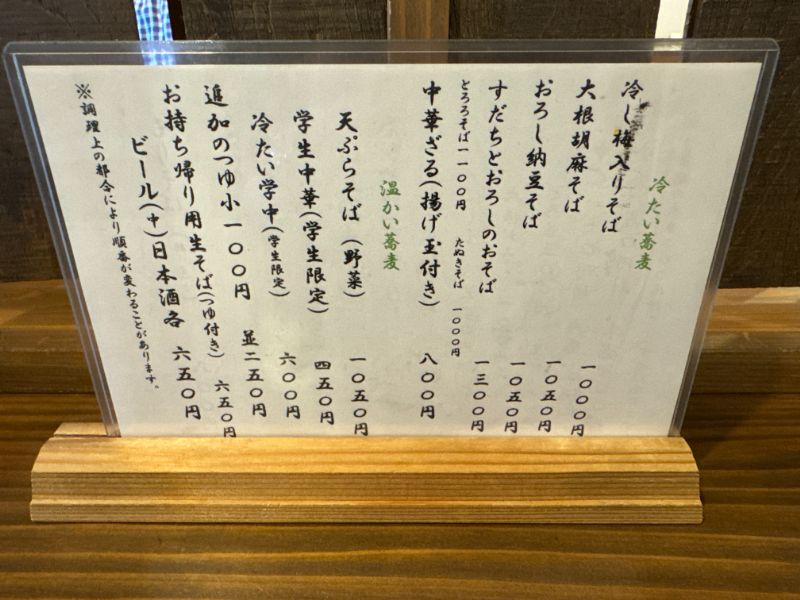 冷たい蕎麦
冷し梅入りそば 一〇〇〇円
大根胡麻そば 一〇五〇円
おろし納豆そば 一〇五〇円
すだちとおろしのおそば 一三〇〇円
とろろそば一一〇〇円 たぬきそば 一〇〇〇円
中華ざる(揚げ玉付き) 八〇〇円
温かい蕎麦
天ぷらそば (野菜) 一〇五〇円
学生中華(学生限定) 四五〇円
冷たい学中(学生限定) 六〇〇円
追加のつゆ小一〇〇円 並二五〇円
お持ち帰り用生そば(つゆ付き) 六五〇円
ビール(中)日本酒各 六五〇円
※調理上の都合により順番が変わることがあります。